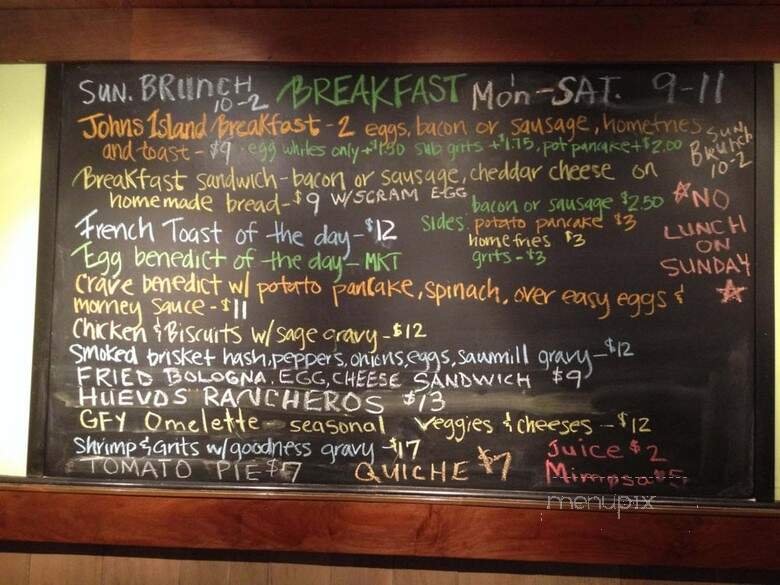 SUN. BRUNCH 10-2 BREAKFAST Mon-SAT. 9-11
Johns Island Breakfast - 2 eggs, bacon or sausage, homefries
and toast - $9 egg whites only +$1.50 sub grits +$1.75, pot pancake +$2.00
SUN Brunch 10-2
Breakfast sandwich - bacon or sausage, cheddar cheese on
homemade bread - $9 W/SCRAM EGG
French Toast of the day - $12
Egg benedict of the day - MKT
sides:
bacon or sausage $2.50
potato pancake $3
home fries $3
grits - $3
NO
LUNCH
ON
SUNDAY
Crave benedict w/ potato pancake, spinach, over easy eggs &
morney sauce - $11
Chicken & Biscuits w/ sage gravy - $12
Smoked brisket hash, peppers, onions, eggs, sawmill gravy - $12
FRIED BOLOGNA, EGG, CHEESE SANDWICH $9
HUEVOS RANCHEROS $13
GFY Omelette - seasonal veggies & cheeses - $12
Shrimp & Grits w/ goodness gravy - $17
TOMATO PIE $7 QUICHE $7
Juice $2
Mimosa $5
menupix